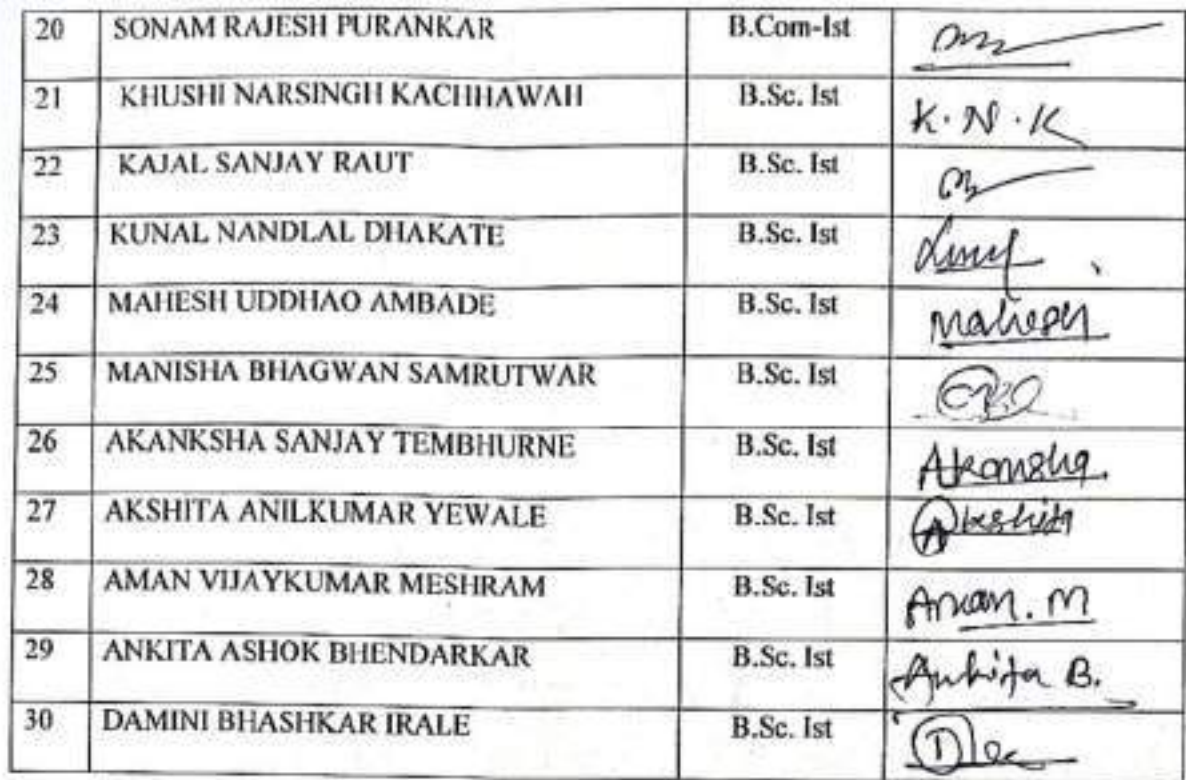 20 SONAM RAJESH PURANKAR B.Com-Ist
21 KHUSHI NARSINGH KACHHAWAH B.Sc. Ist K.N.K
22 KAJAL SANJAY RAUT B.Sc. Ist
23 KUNAL NANDLAL DHAKATE B.Sc. Ist
24 MAHESH UDDHAO AMBADE B.Sc. Ist Mahesh
25 MANISHA BHAGWAN SAMRUTWAR B.Sc. Ist
26 AKANKSHA SANJAY TEMBHURNE B.Sc. Ist Akansha.
27 AKSHITA ANILKUMAR YEWALE B.Sc. Ist Akshita
28 AMAN VIJAYKUMAR MESHRAM B.Sc. Ist Aman. M
29 ANKITA ASHOK BHENDARKAR B.Sc. Ist Ankita B.
30 DAMINI BHASHKAR IRALE B.Sc. Ist